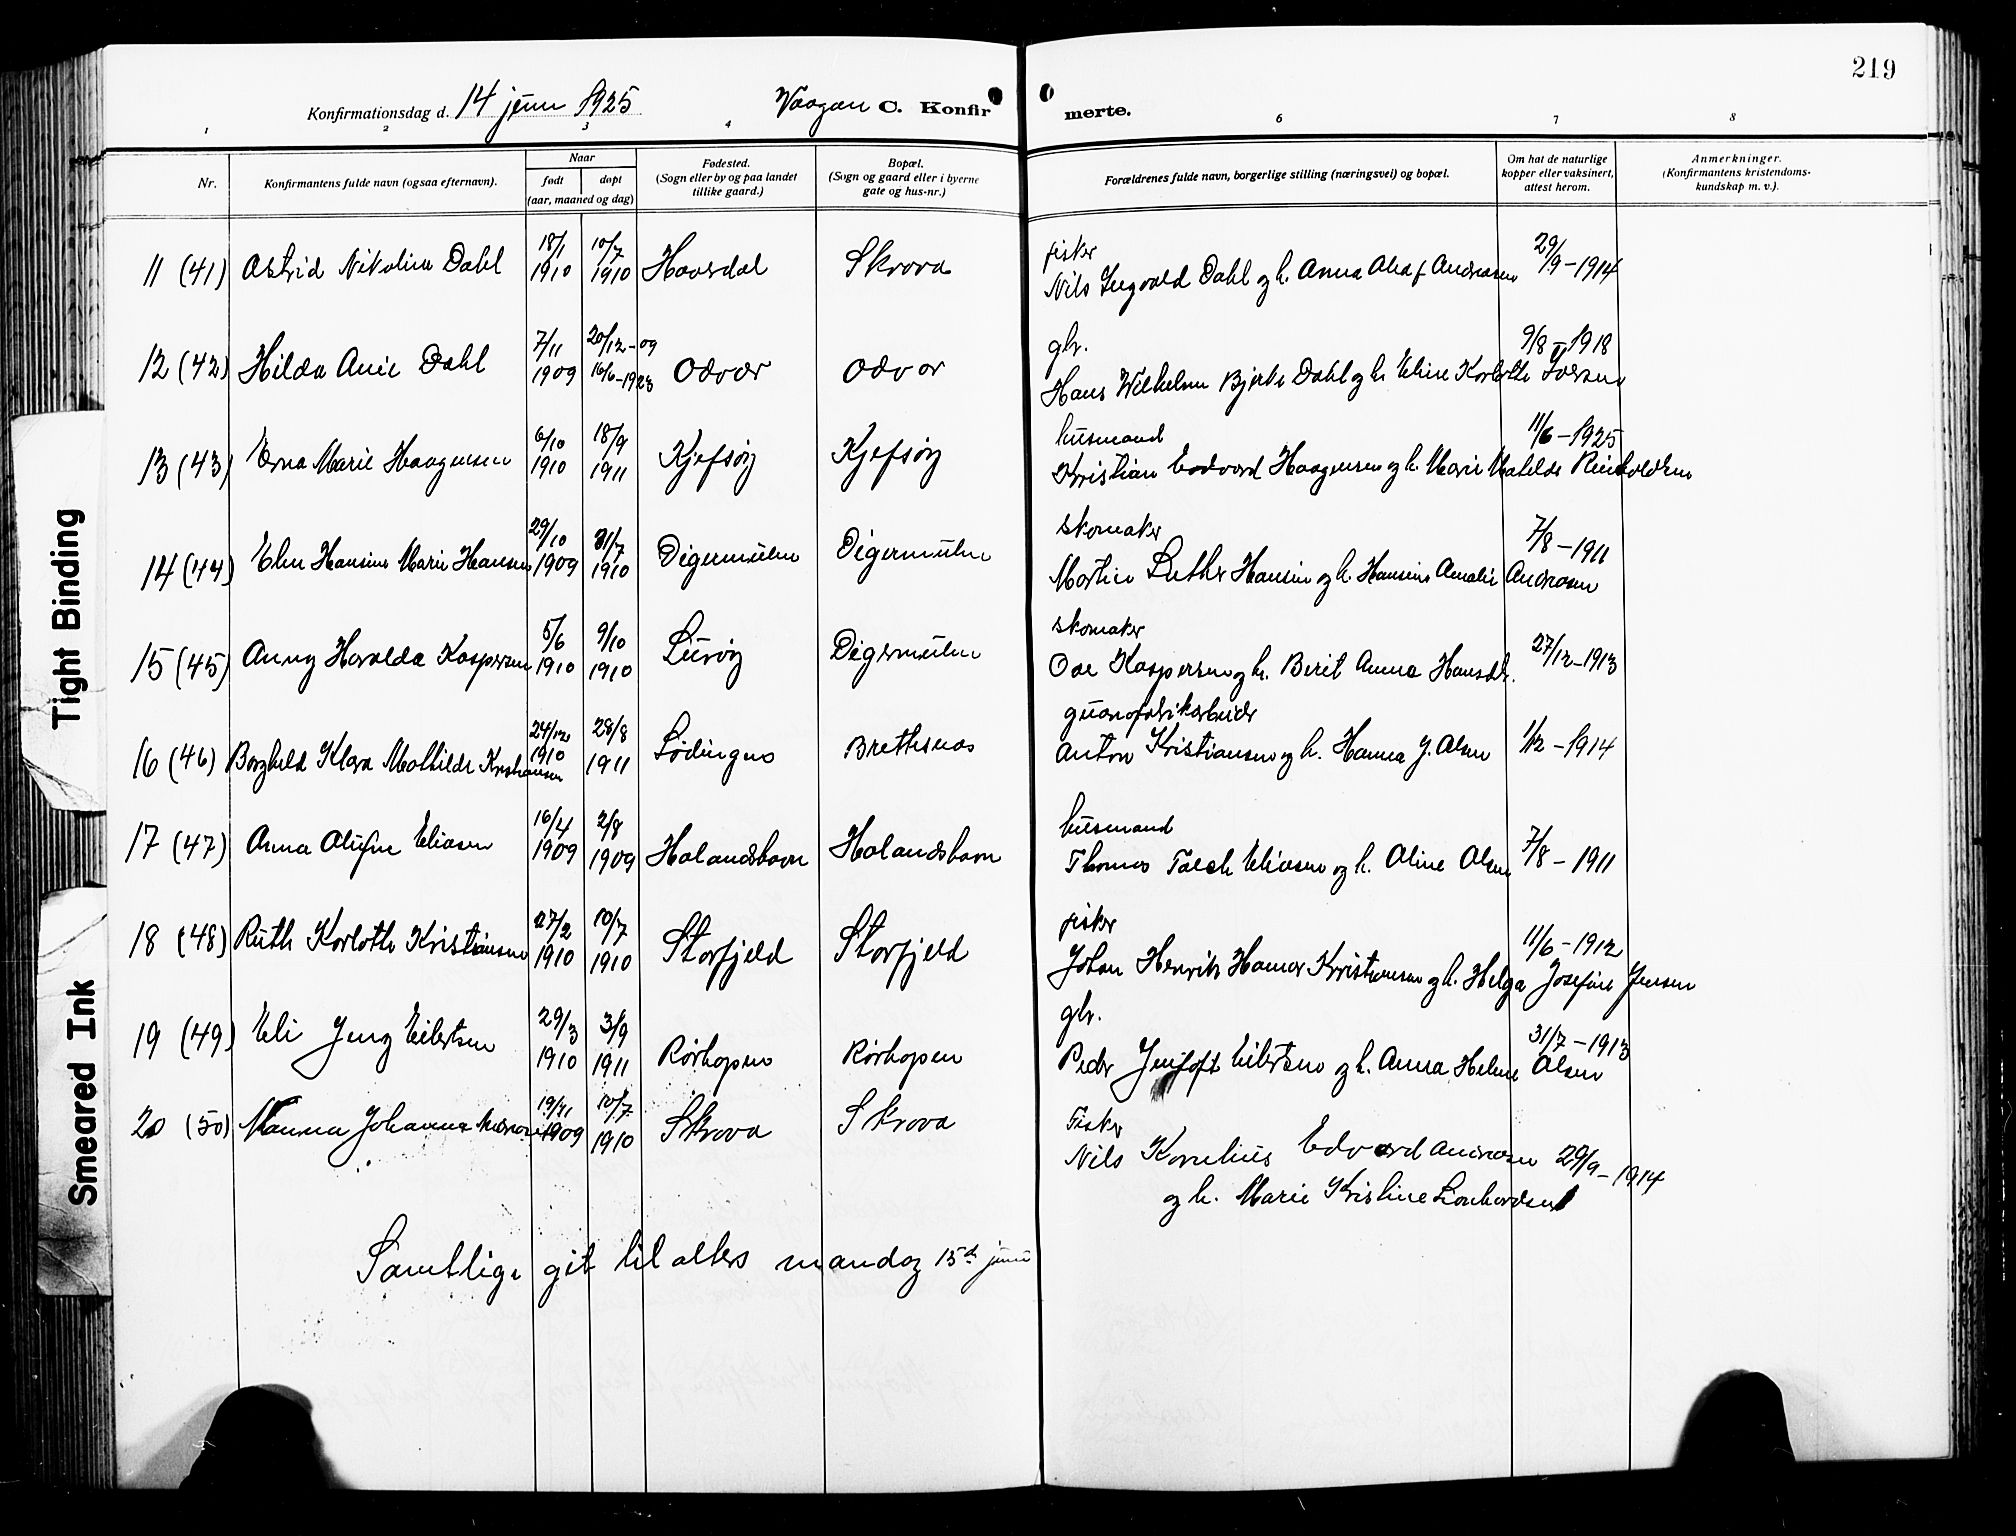 219
Konfirmationsdag d. 14 juni 1925 Vaagan C. Konfirmerte.
1 2 3 4 6 7 8
Nr. Konfirmantens fulde navn (ogsaa efternavn). Naar født døpt (aar, maaned og dag) Fødested. (Sogn eller by og paa landet tillike gaard.) Bopæl. (Sogn og gaard eller i byerne gate og hus-nr.) Forældrenes fulde navn, borgerlige stilling (næringsvei) og bopæl. Om hat de naturlige kopper eller vaksinert, attest herom. Anmerkninger. (Konfirmantens kristendomskundskap m. v.).
11 (41) Astrid Nikoline Dahl 18/1 1910 10/7 1910 Haversdal Skrova fisker
Nils Ingvald Dahl og h. Anna Andreasen 29/9-1914
12 (42) Hilda Anie Dahl 7/11 1909 20/12-09 16/6-1923 Odvær Odvær gbr.
Hans Wilhelm Bjerke Dahl og h. Eline Karlotte Iversen 9/8 1918
13 (43) Erna Marie Haagensen 6/10 1910 18/9 1911 Kjefsøy Kjefsøy husmand
Kristian Edvard Haagensen og h. Marie Matilde Reinholdsen 11/6-1925
14 (44) Elen Hansine Marie Hansen 29/10 1909 31/7 1910 Digermulen Digermulen skomaker
Martin Luther Hansen og h. Hansine Amalie Andreasen 7/8-1911
15 (45) Anny Haralda Kaspersen 5/6 1910 9/10 1910 Lurøy Digermulen skomaker
Ole Kaspersen og h. Berit Anna Hansdtr. 27/12-1913
16 (46) Borghild Klara Mathilde Kristiansen 24/12 1910 28/8 1911 Lødingen Brettesnes guanofabrikarbeider
Anton Kristiansen og h. Hanna J. Olsen 1/12-1914
17 (47) Anna Olufine Eliasen 16/4 1909 2/8 1909 Holandshavn Holandshavn husmand
Thomas Falch Eliasen og h. Oline Olsen 7/8-1911
18 (48) Ruth Karlotte Kristiansen 27/2 1910 10/7 1910 Storfjeld Storfjeld fisker
Johan Henrik Hamer Kristiansen og h. Helga Josefine Jensen 11/6-1912
19 (49) Eli Jeny Eilertsen 29/3 1910 3/9 1911 Rørhopen Rørhopen gbr.
Peder Jentoft Eilertsen og h. Anna Helene Olsen 31/7-1913
20 (50) Nanna Johanna 19/11 1909 10/7 1910 Skrova Skrova Fisker
Nils Kornelius Edvard Andreasen 29/9-1914
og h. Marie Kristine Leonhardsen
Samtlige git til alters mandag 15de juni
Tight Binding
Smeared Ink